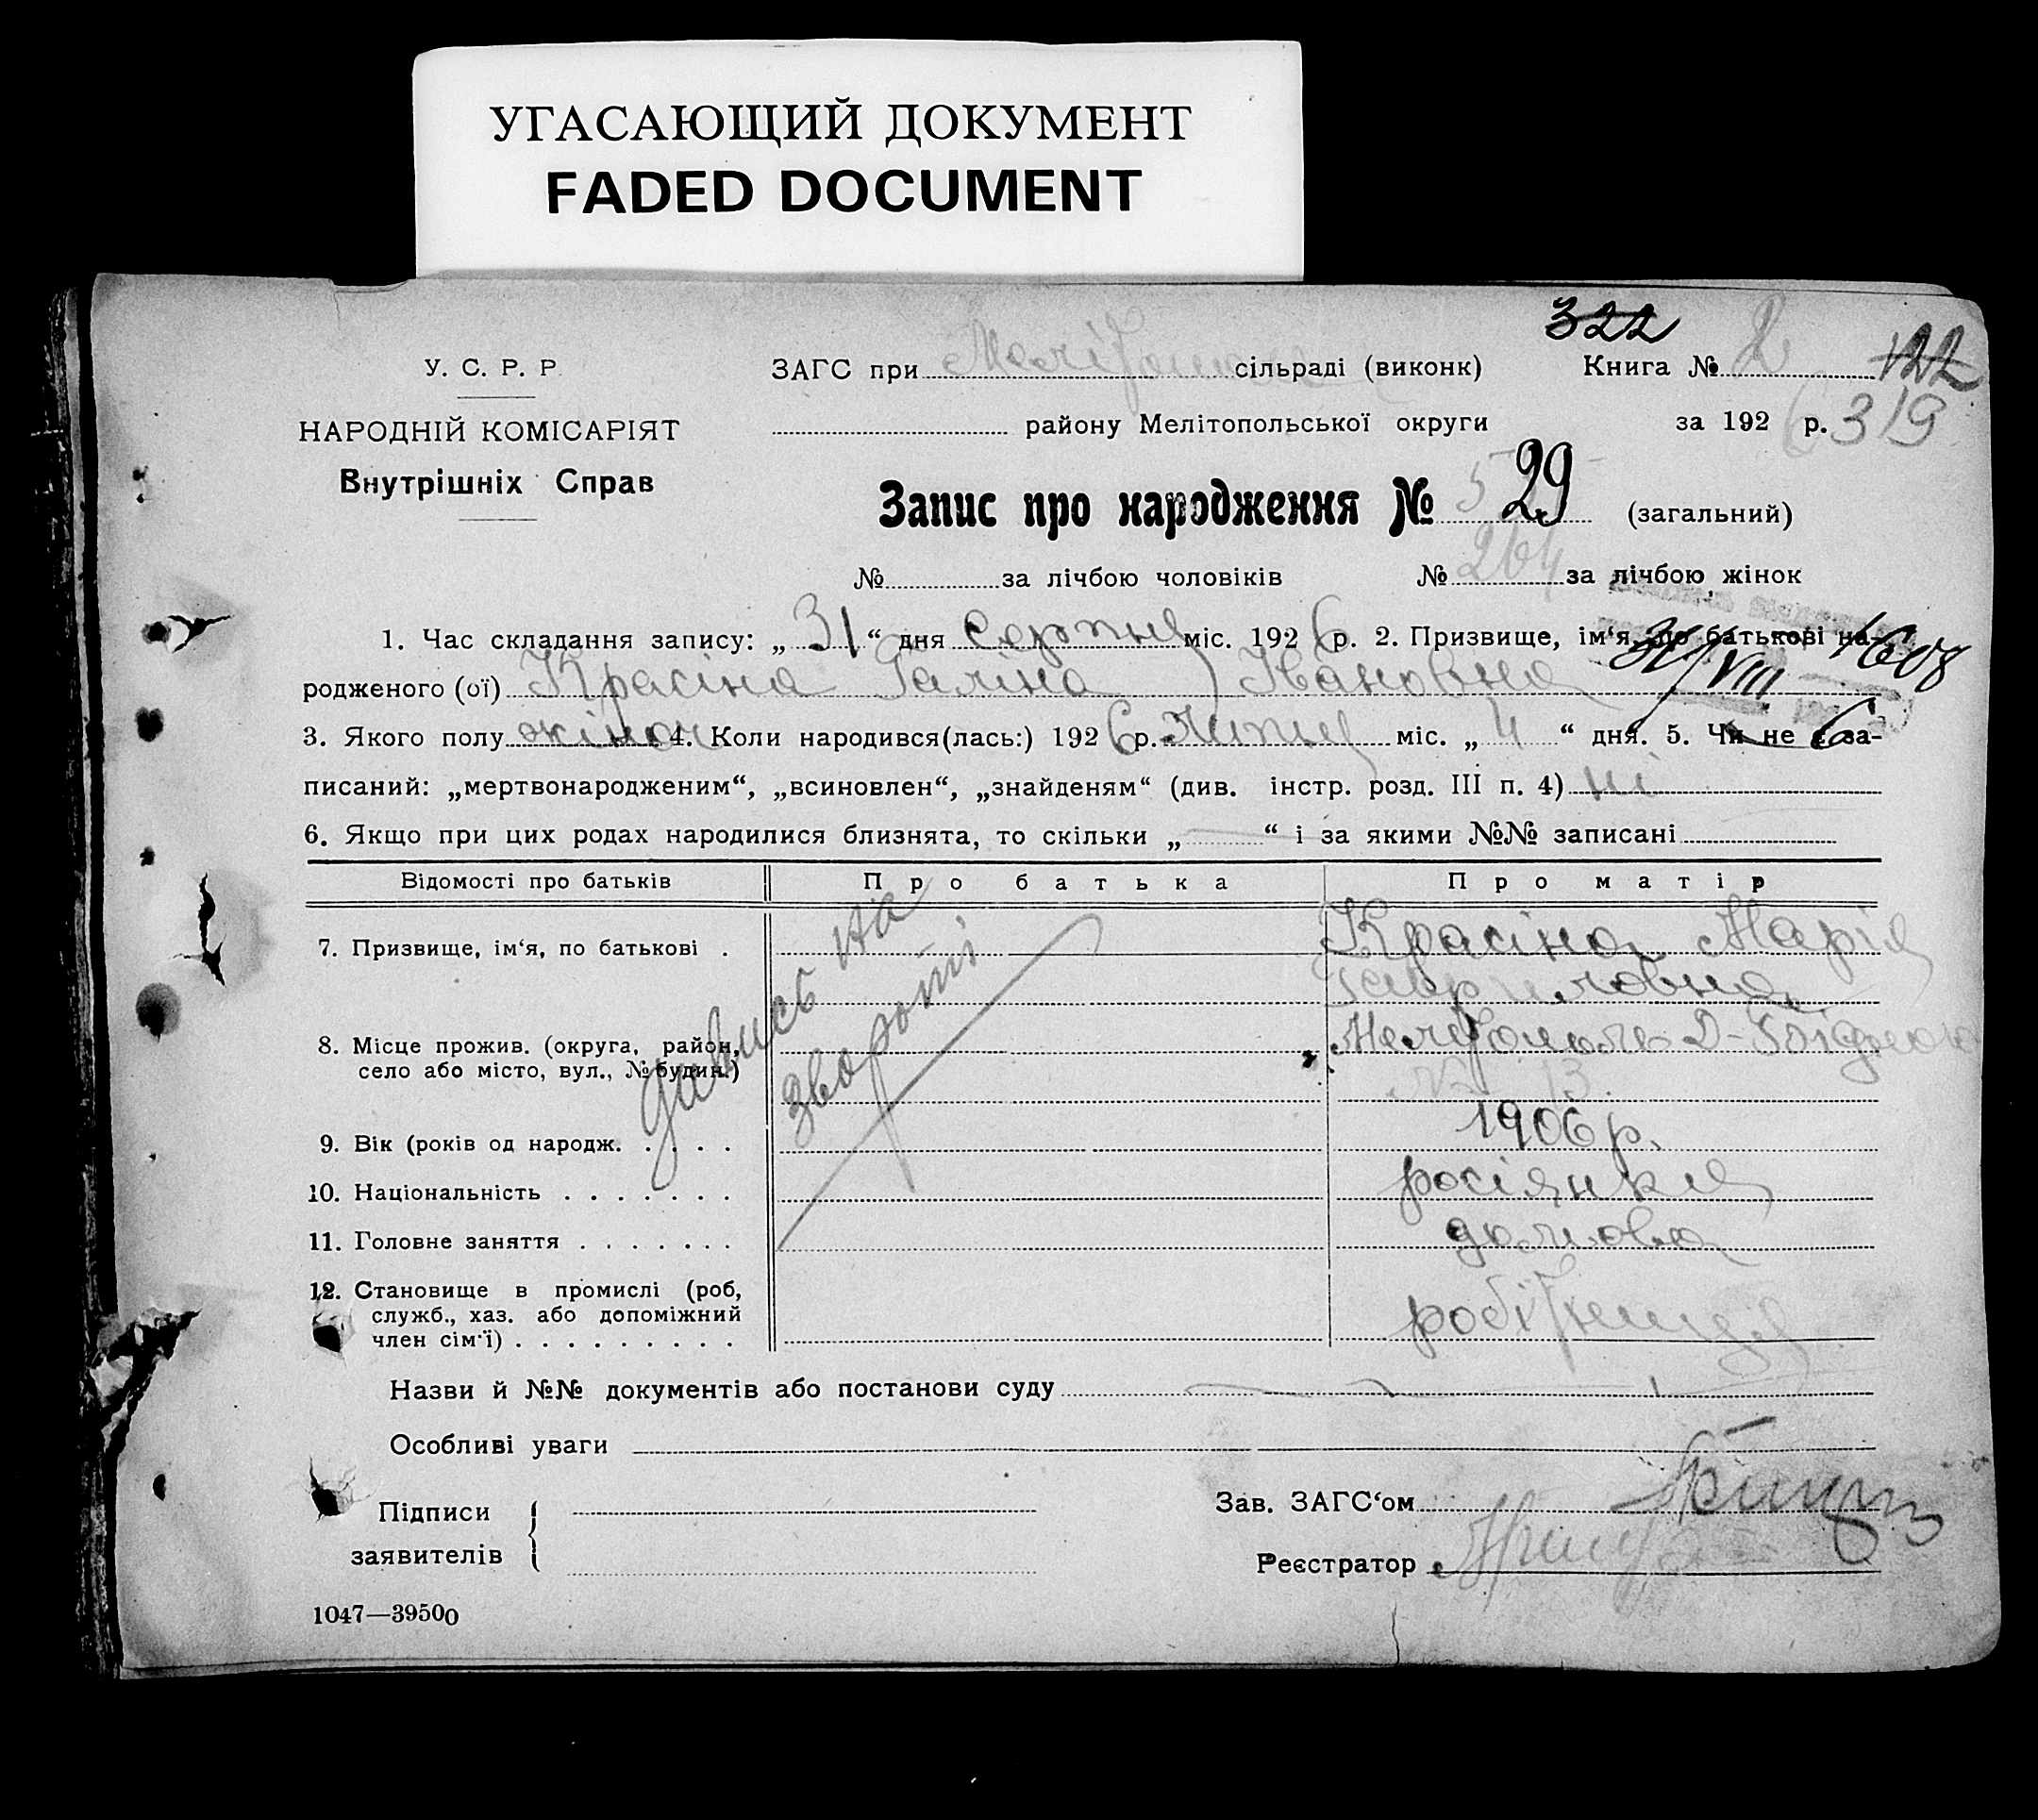 УГАСАЮЩИЙ ДОКУМЕНТ
FADED DOCUMENT
322
У. С. Р. Р
ЗАГС при Мелітополь сільраді (виконк)
Книга № 2 122
НАРОДНІЙ КОМІСАРІЯТ
району Мелітопольської округи
за 1926 р. 319
Внутрішніх Справ
Запис про народження № 29 (загальний)
№ за лічбою чоловіків
№ 264 за лічбою жінок
1. Час складання запису: „31“ дня серпня міс. 1926 р. 2. Призвище, ім‘я, по батькові на-
родженого (ої) Красіна Галіна Івановна
31/VIII 1608
3. Якого полу жіноч 4. Коли народився(лась:) 1926 р. Липня міс. „4“ дня. 5. Чи не є за-
6
писаний: „мертвонародженим“, „всиновлен“, „знайденям“ (див. інстр. розд. III п. 4) ні
6. Якщо при цих родах народилися близнята, то скільки „ “ і за якими №№ записані
Відомості про батьків
Про батька
Про матір
7. Призвище, ім‘я, по батькові .
Красіна Марія
Гавриловна
на
звороті
8. Місце прожив. (округа, район,
село або місто, вул., № будин.)
Мелітополь
№ 13.
9. Вік (років од народж. . . . .
1906 р.
10. Національність . . . . . . .
росіянка
11. Головне заняття . . . . . . .
домова
12. Становище в промислі (роб,
служб., хаз. або допоміжний
член сім‘ї) . . . . . . . . .
робітниця
Назви й №№ документів або постанови суду
Особливі уваги
Підписи
заявителів
Зав. ЗАГС‘ом
Реєстратор
1047—39500